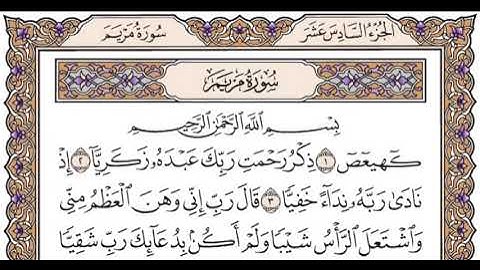 الجُزْءُ السَّادِسَ عَشَرَ
سُورَةُ مَرْيَمَ
سُورَةُ مَرْيَمَ
بِسْمِ اللَّهِ الرَّحْمَٰنِ الرَّحِيمِ
كٓهيعٓصٓ ١ ذِكْرُ رَحْمَتِ رَبِّكَ عَبْدَهُۥ زَكَرِيَّآ ٢ إِذْ
نَادَىٰ رَبَّهُۥ نِدَآءً خَفِيًّا ٣ قَالَ رَبِّ إِنِّي وَهَنَ الْعَظْمُ مِنِّي
وَاشْتَعَلَ الرَّأْسُ شَيْبًا وَلَمْ أَكُنۢ بِدُعَآئِكَ رَبِّ شَقِيًّا